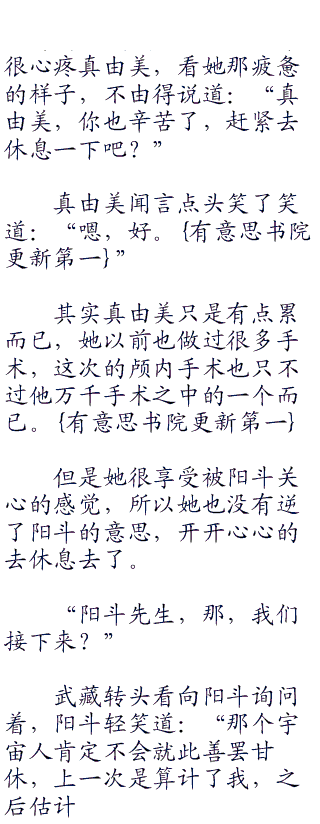 很心疼真由美，看她那疲惫
的样子，不由得说道：“真
由美，你也辛苦了，赶紧去
休息一下吧？”
真由美闻言点头笑了笑
道：“嗯，好。{有意思书院
更新第一}”
其实真由美只是有点累
而已，她以前也做过很多手
术，这次的颅内手术也只不
过他万千手术之中的一个而
已。{有意思书院更新第一}
但是她很享受被阳斗关
心的感觉，所以她也没有逆
了阳斗的意思，开开心心的
去休息去了。
“阳斗先生，那，我们
接下来？”
武藏转头看向阳斗询问
着，阳斗轻笑道：“那个宇
宙人肯定不会就此善罢甘
休，上一次是算计了我，之
后估计